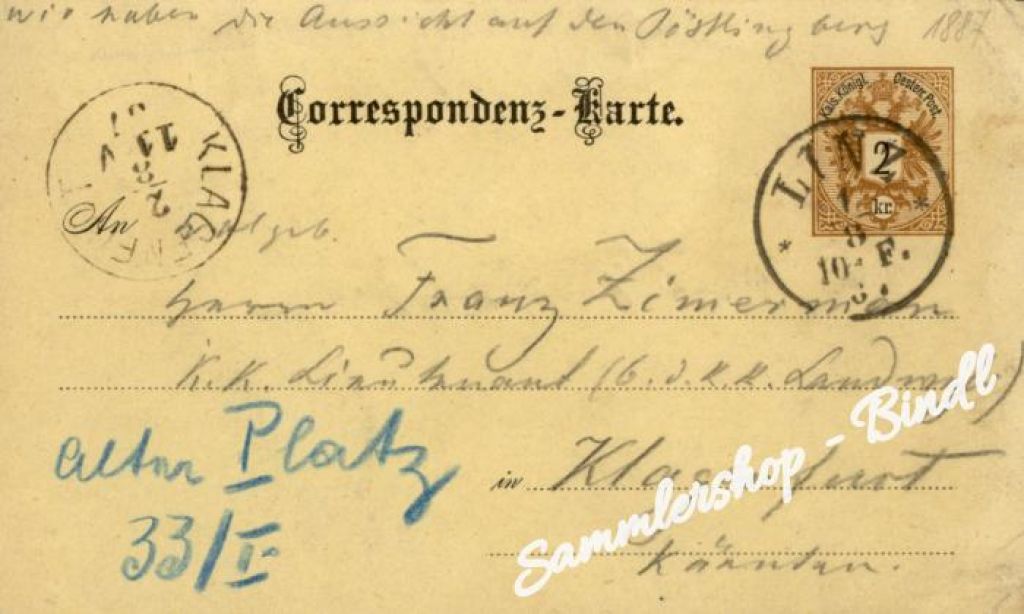 wir haben die Aussicht auf den Pöstlingberg 1887
Correspondenz-Karte.
Kais. Königl. Oesterr. Post.
2
kr.
LINZ
8
10 F.
KLAGENFURT
2
8
11 V
87
An
Herrn Franz Zimerman
K.K. Lieutenant (b. d. k.k. Landwehr)
alter Platz
33/I.
in Klagenfurt
Kärnten.
Sammlershop - Bindl